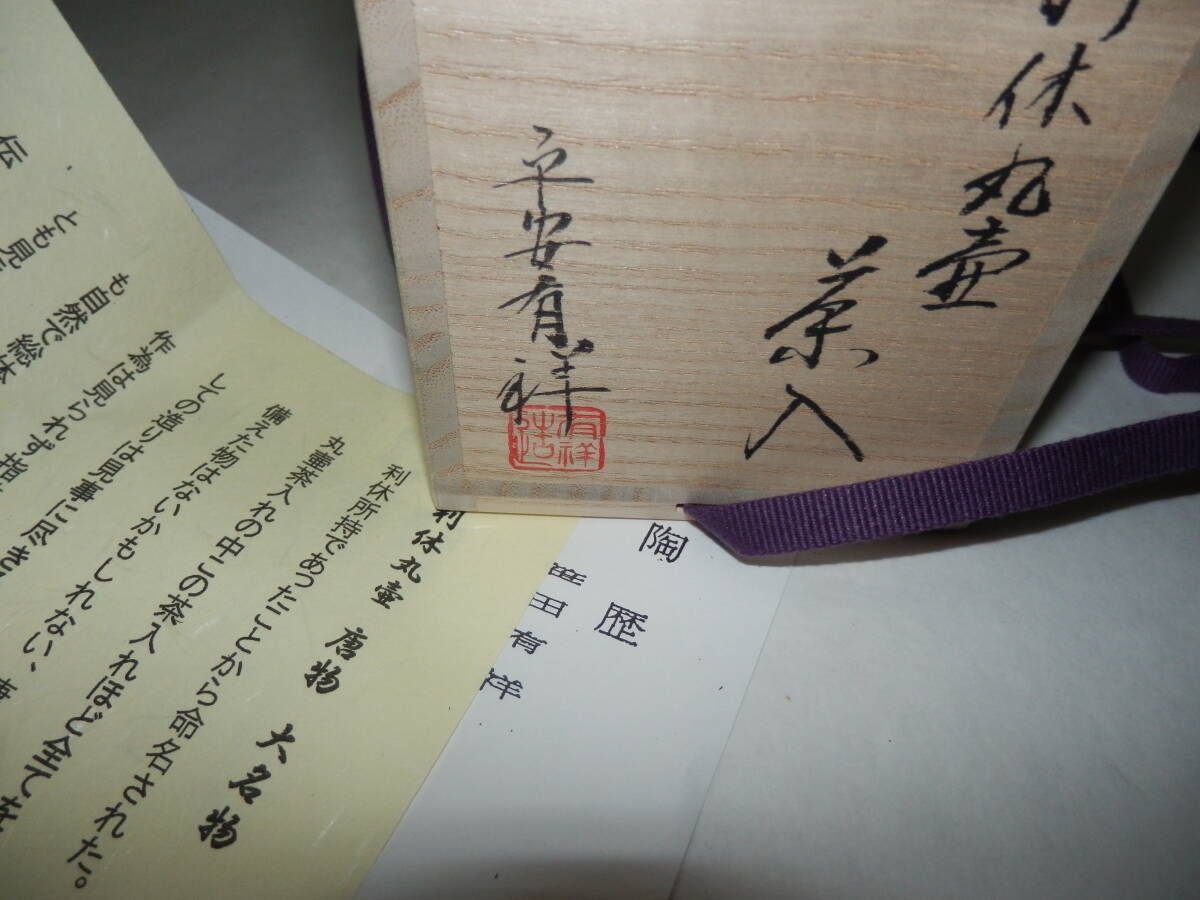 利休丸壷
茶入
平安有祥
有祥
造
陶歴
笹田有祥
利休丸壷 唐物 大名物
利休所持であつたことから命名された。
丸壷茶入れの中この茶入れほど全てを
備えた物はないかもしれない、
しての造りは見事に尽き
作為は見られず指
も自然で総体
とも見
伝